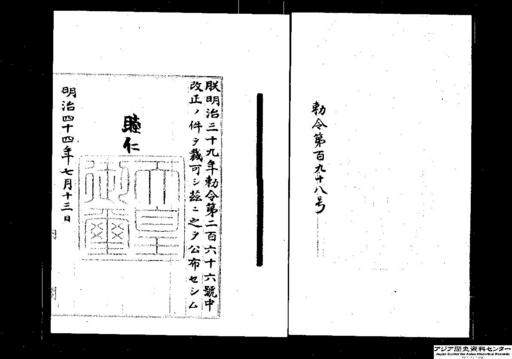 勅令第百九十八号
朕明治三十九年勅令第二百六十六號中
改正ノ件ヲ裁可シ茲ニ之ヲ公布セシム
睦仁
天皇御璽
明治四十四年七月十三日
内閣
アジア歴史資料センター
Japan Center for Asian Historical Records